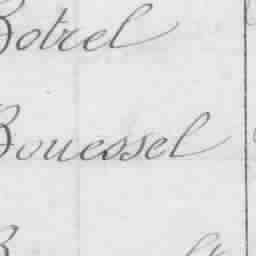 Botrel
Bouessel